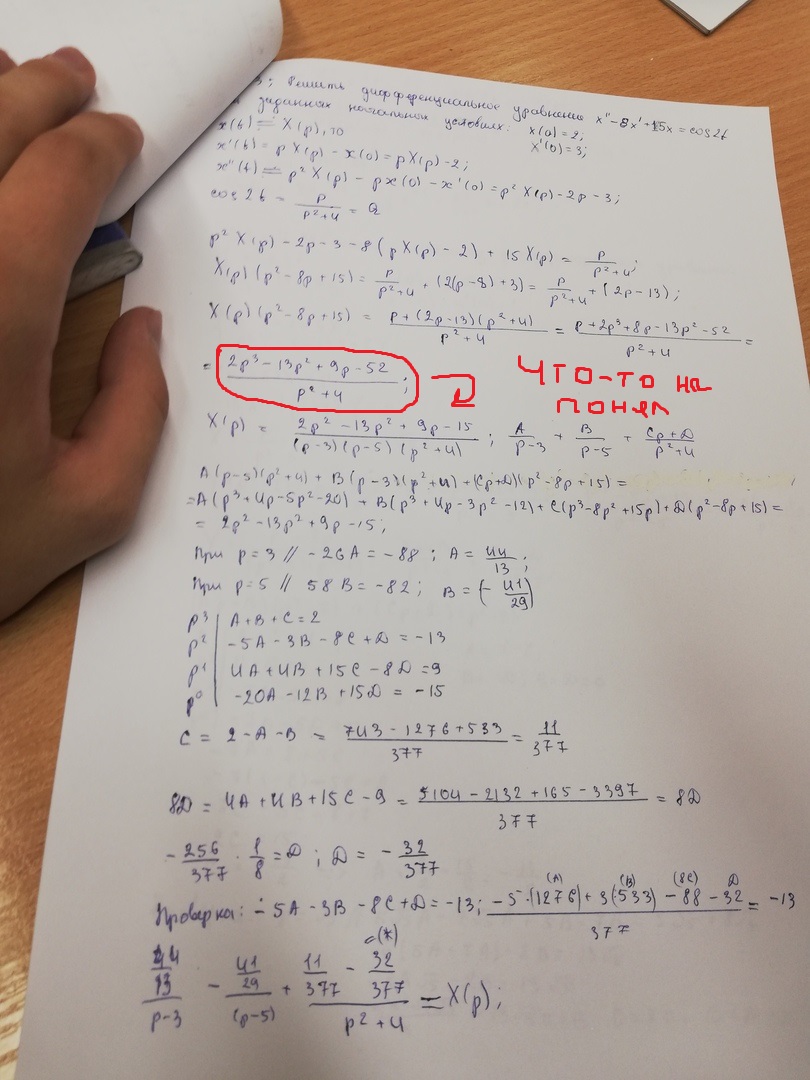 3; Решить дифференциальное уравнение x'' - 8x' + 15x = cos2t
заданных начальных условиях: x(0) = 2;
x'(0) = 3;
x(t) = X(p), то
x'(t) = pX(p) - x(0) = pX(p) - 2;
x''(t) = p² X(p) - px(0) - x'(0) = p² X(p) - 2p - 3;
cos 2t = p/(p²+4) = Q
p² X(p) - 2p - 3 - 8(pX(p) - 2) + 15X(p) = p/(p²+4);
X(p)(p² - 8p + 15) = p/(p²+4) + (2(p-8)+3) = p/(p²+4) + (2p-13);
X(p)(p² - 8p + 15) = (p + (2p-13)(p²+4))/(p²+4) = (p + 2p³ + 8p - 13p² - 52)/(p²+4) =
= (2p³ - 13p² + 9p - 52)/(p²+4);
что-то не
понял
X(p) = (2p² - 13p² + 9p - 15)/((p-3)(p-5)(p²+4)); A/(p-3) + B/(p-5) + (Cp+D)/(p²+4)
A(p-5)(p²+4) + B(p-3)(p²+4) + (Cp+D)(p² - 8p + 15) =
= A(p³ + 4p - 5p² - 20) + B(p³ + 4p - 3p² - 12) + C(p³ - 8p² + 15p) + D(p² - 8p + 15) =
= 2p² - 13p² + 9p - 15;
При p=3 // -26A = -88; A = 44/13;
При p=5 // 58B = -82; B = (-41/29)
p³ | A + B + C = 2
p² | -5A - 3B - 8C + D = -13
p¹ | 4A + 4B + 15C - 8D = 9
p⁰ | -20A - 12B + 15D = -15
C = 2 - A - B = (743 - 1276 + 533)/377 = 11/377
8D = 4A + 4B + 15C - 9 = (5104 - 2132 + 165 - 3397)/377 = 8D
-256/377 · 1/8 = D; D = -32/377
(A) (B) (8C) D
Проверка: -5A - 3B - 8C + D = -13; (-5·(1276) + 3(533) - 88 - 32)/377 = -13
(*)
(44/13)/(p-3) - (41/29)/(p-5) + (11/377 - 32/377)/(p²+4) = X(p);